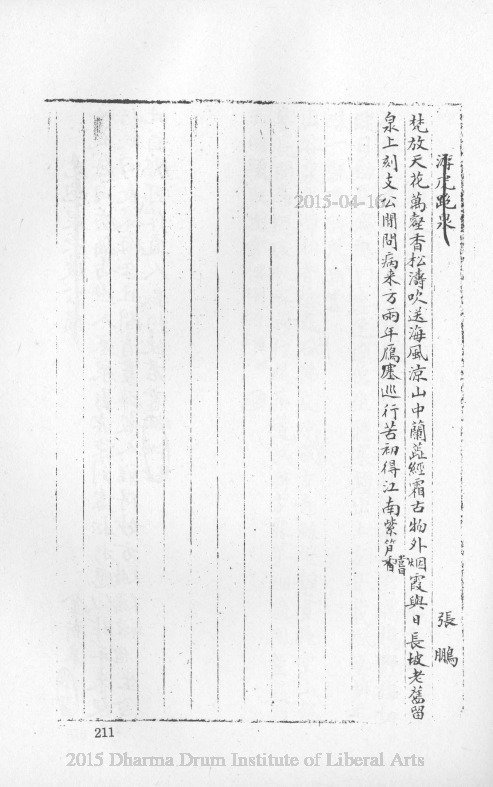 游虎跑泉
張鵬
梵放天花萬壑香松濤吹送海風涼山中蘭蕋經霜古物外烟霞與日長坡老舊留
泉上刻支公閒問病来方兩年鴈塞巡行苦初得江南紫筍嘗
2015-04-16
211
2015 Dharma Drum Institute of Liberal Arts